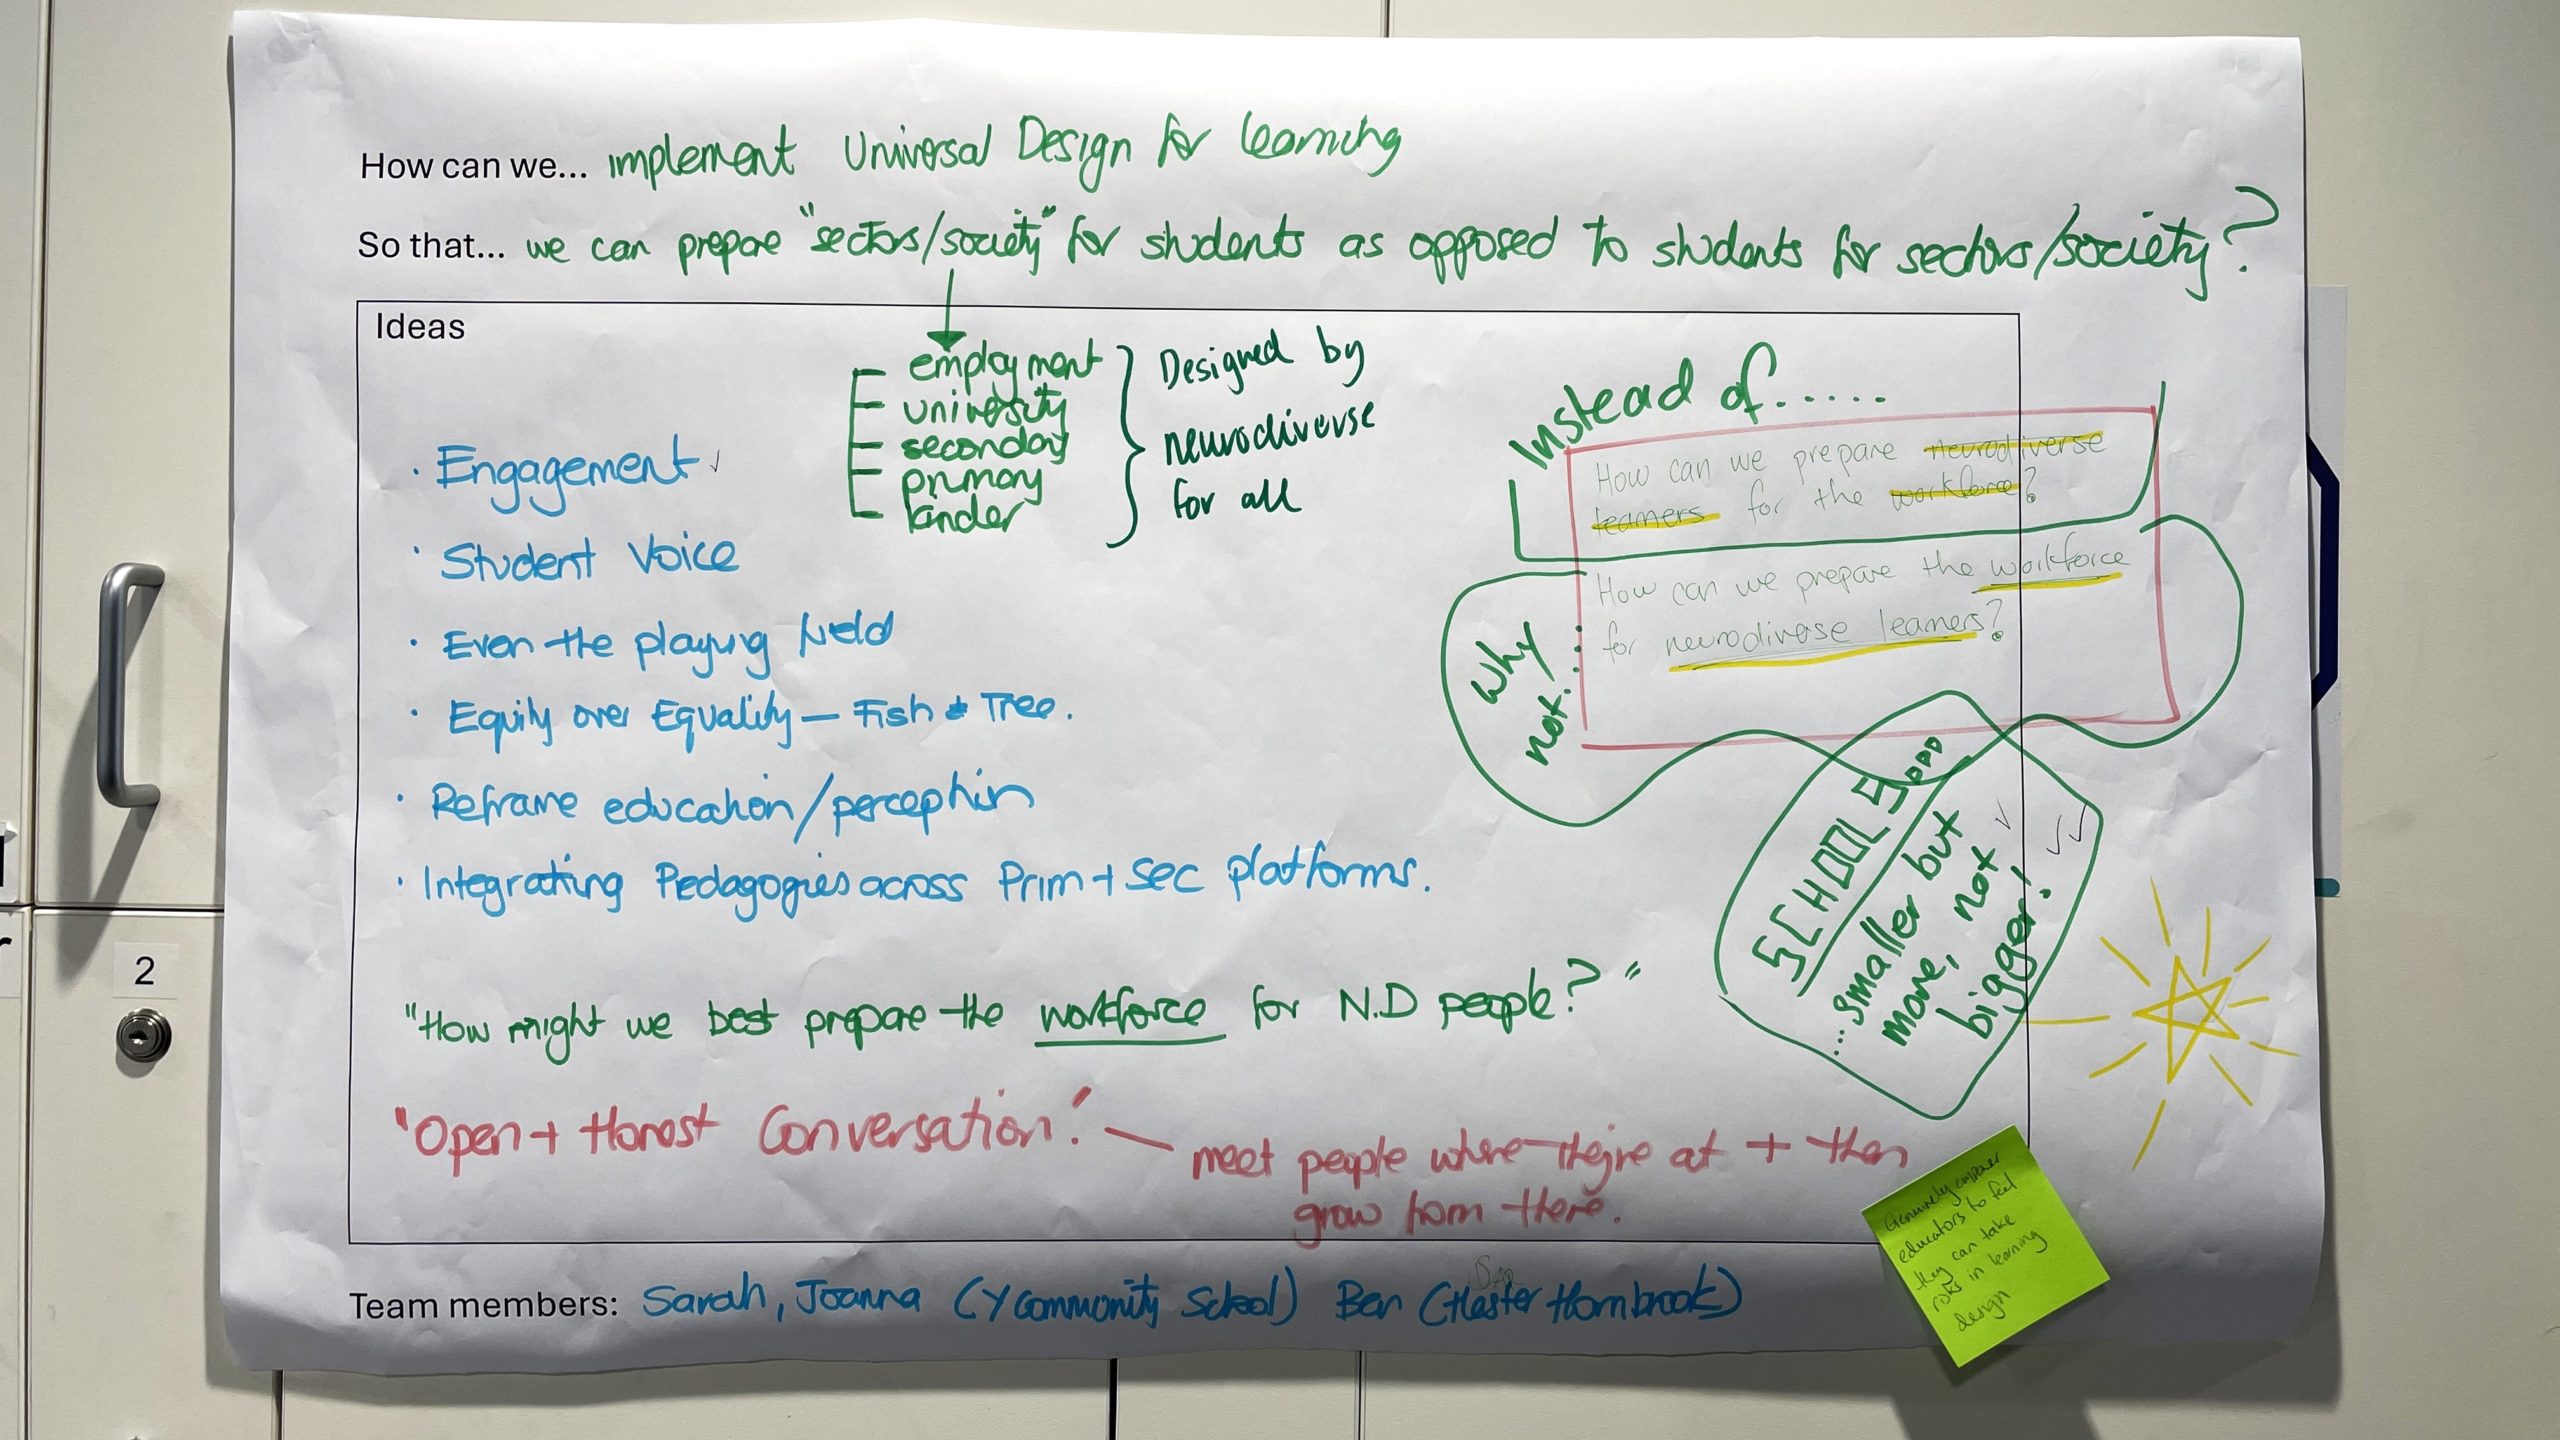 How can we... implement Universal Design for learning
So that... we can prepare "sectors/society" for students as opposed to students for sectors/society?
Ideas
employment
university
secondary
primary
kinder
Designed by
neurodiverse
for all
Instead of.....
How can we prepare neurodiverse
learners for the workforce?
Why
not....
How can we prepare the workforce
for neurodiverse learners?
· Engagement ✓
· Student Voice
· Even the playing field
· Equity over Equality — Fish & Tree.
· Reframe education/perception
· Integrating Pedagogies across Prim + Sec platforms.
SCHOOLS...
...smaller but
more, not
bigger!
"How might we best prepare the workforce for N.D people?"
"Open + Honest Conversation!" — meet people where they're at + then
grow from there.
Genuinely empower
educators to feel
they can take
risks in learning
design
Team members: Sarah, Joanna (Y Community School) Ben (Hester Hornbrook)
2